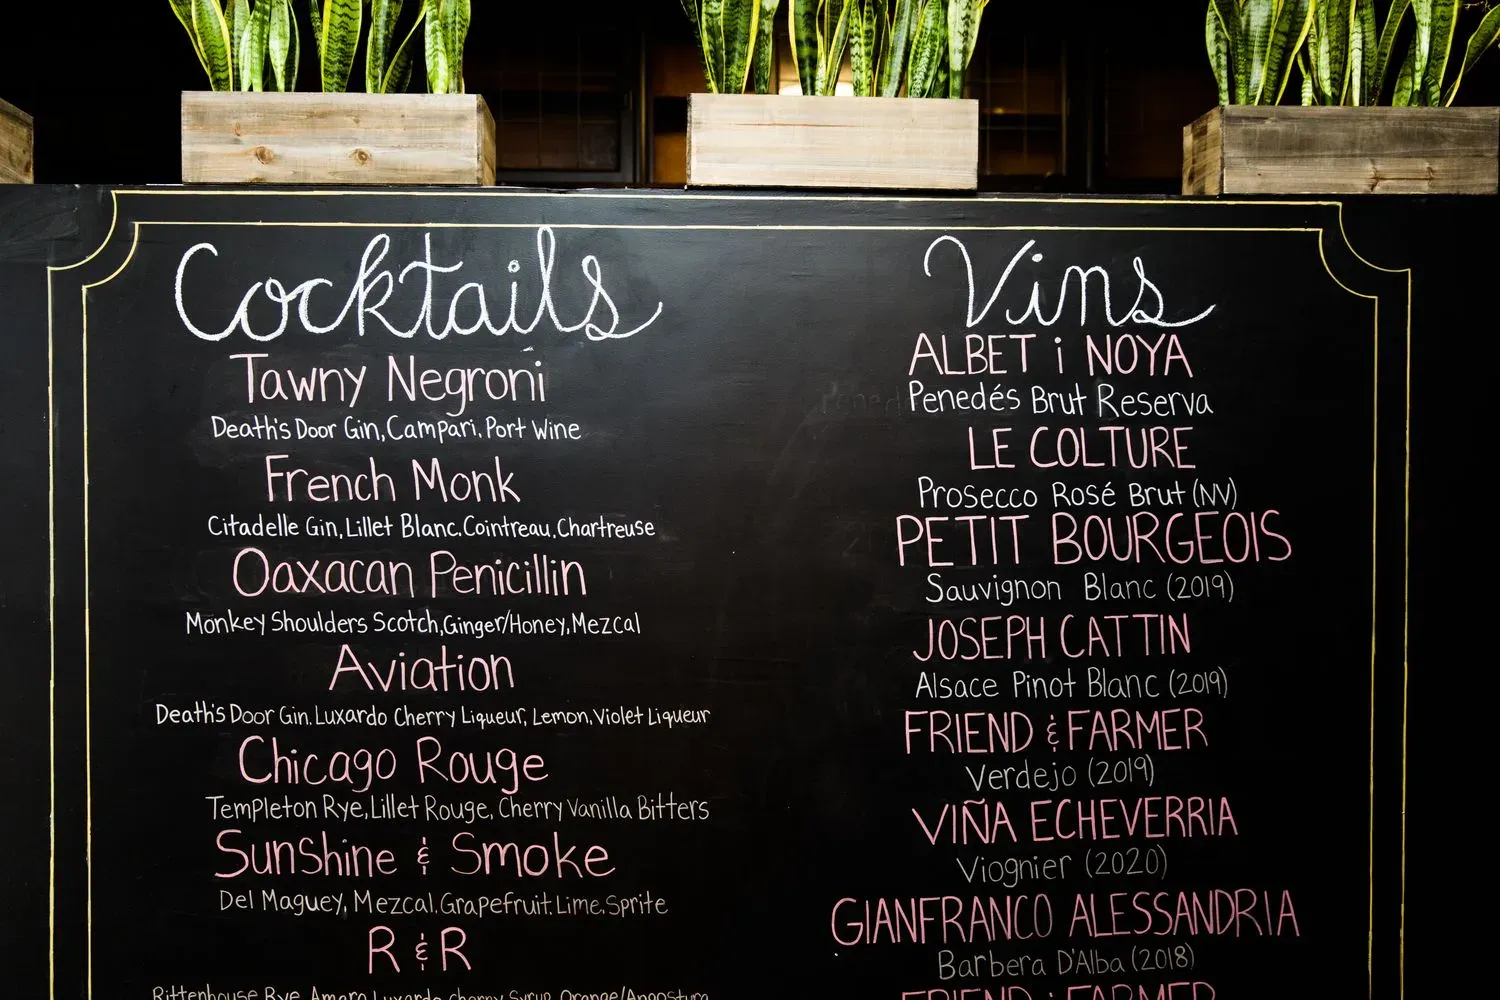 Cocktails
Tawny Negroni
Death's Door Gin, Campari, Port Wine
French Monk
Citadelle Gin, Lillet Blanc, Cointreau, Chartreuse
Oaxacan Penicillin
Monkey Shoulders Scotch, Ginger/Honey, Mezcal
Aviation
Death's Door Gin, Luxardo Cherry Liqueur, Lemon, Violet Liqueur
Chicago Rouge
Templeton Rye, Lillet Rouge, Cherry Vanilla Bitters
Sunshine & Smoke
Del Maguey, Mezcal, Grapefruit, Lime, Sprite
R & R
Rittenhouse Rye, Amaro, Luxardo cherry Syrup, Orange/Angostura
Vins
ALBET i NOYA
Penedés Brut Reserva
LE COLTURE
Prosecco Rosé Brut (NV)
PETIT BOURGEOIS
Sauvignon Blanc (2019)
JOSEPH CATTIN
Alsace Pinot Blanc (2019)
FRIEND & FARMER
Verdejo (2019)
VIÑA ECHEVERRIA
Viognier (2020)
GIANFRANCO ALESSANDRIA
Barbera D'Alba (2018)
FRIEND & FARMER